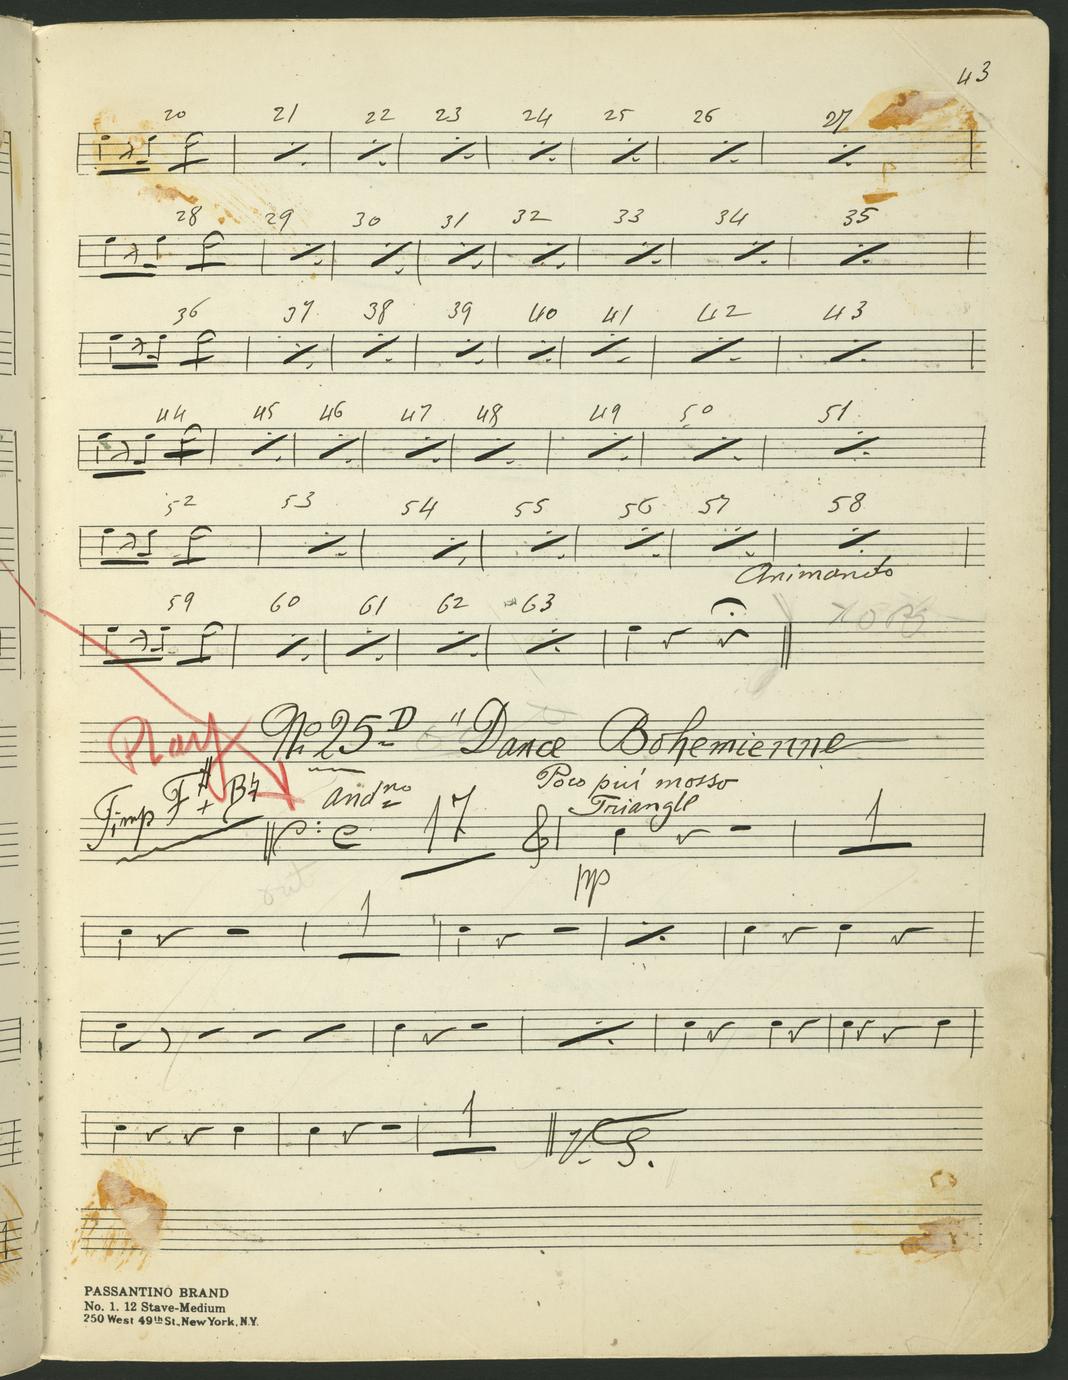 43
20 21 22 23 24 25 26 27
28 29 30 31 32 33 34 35
36 37 38 39 40 41 42 43
44 45 46 47 48 49 50 51
52 53 54 55 56 57 58
Animando
59 60 61 62 63
Play No 25 D "Dance Bohemienne
Timp F# B♮ Andno Poco piu mosso
Triangle
C 17 1
pp
out
1
1
V. S.
PASSANTINO BRAND
No. 1. 12 Stave-Medium
250 West 49th St., New York, N.Y.